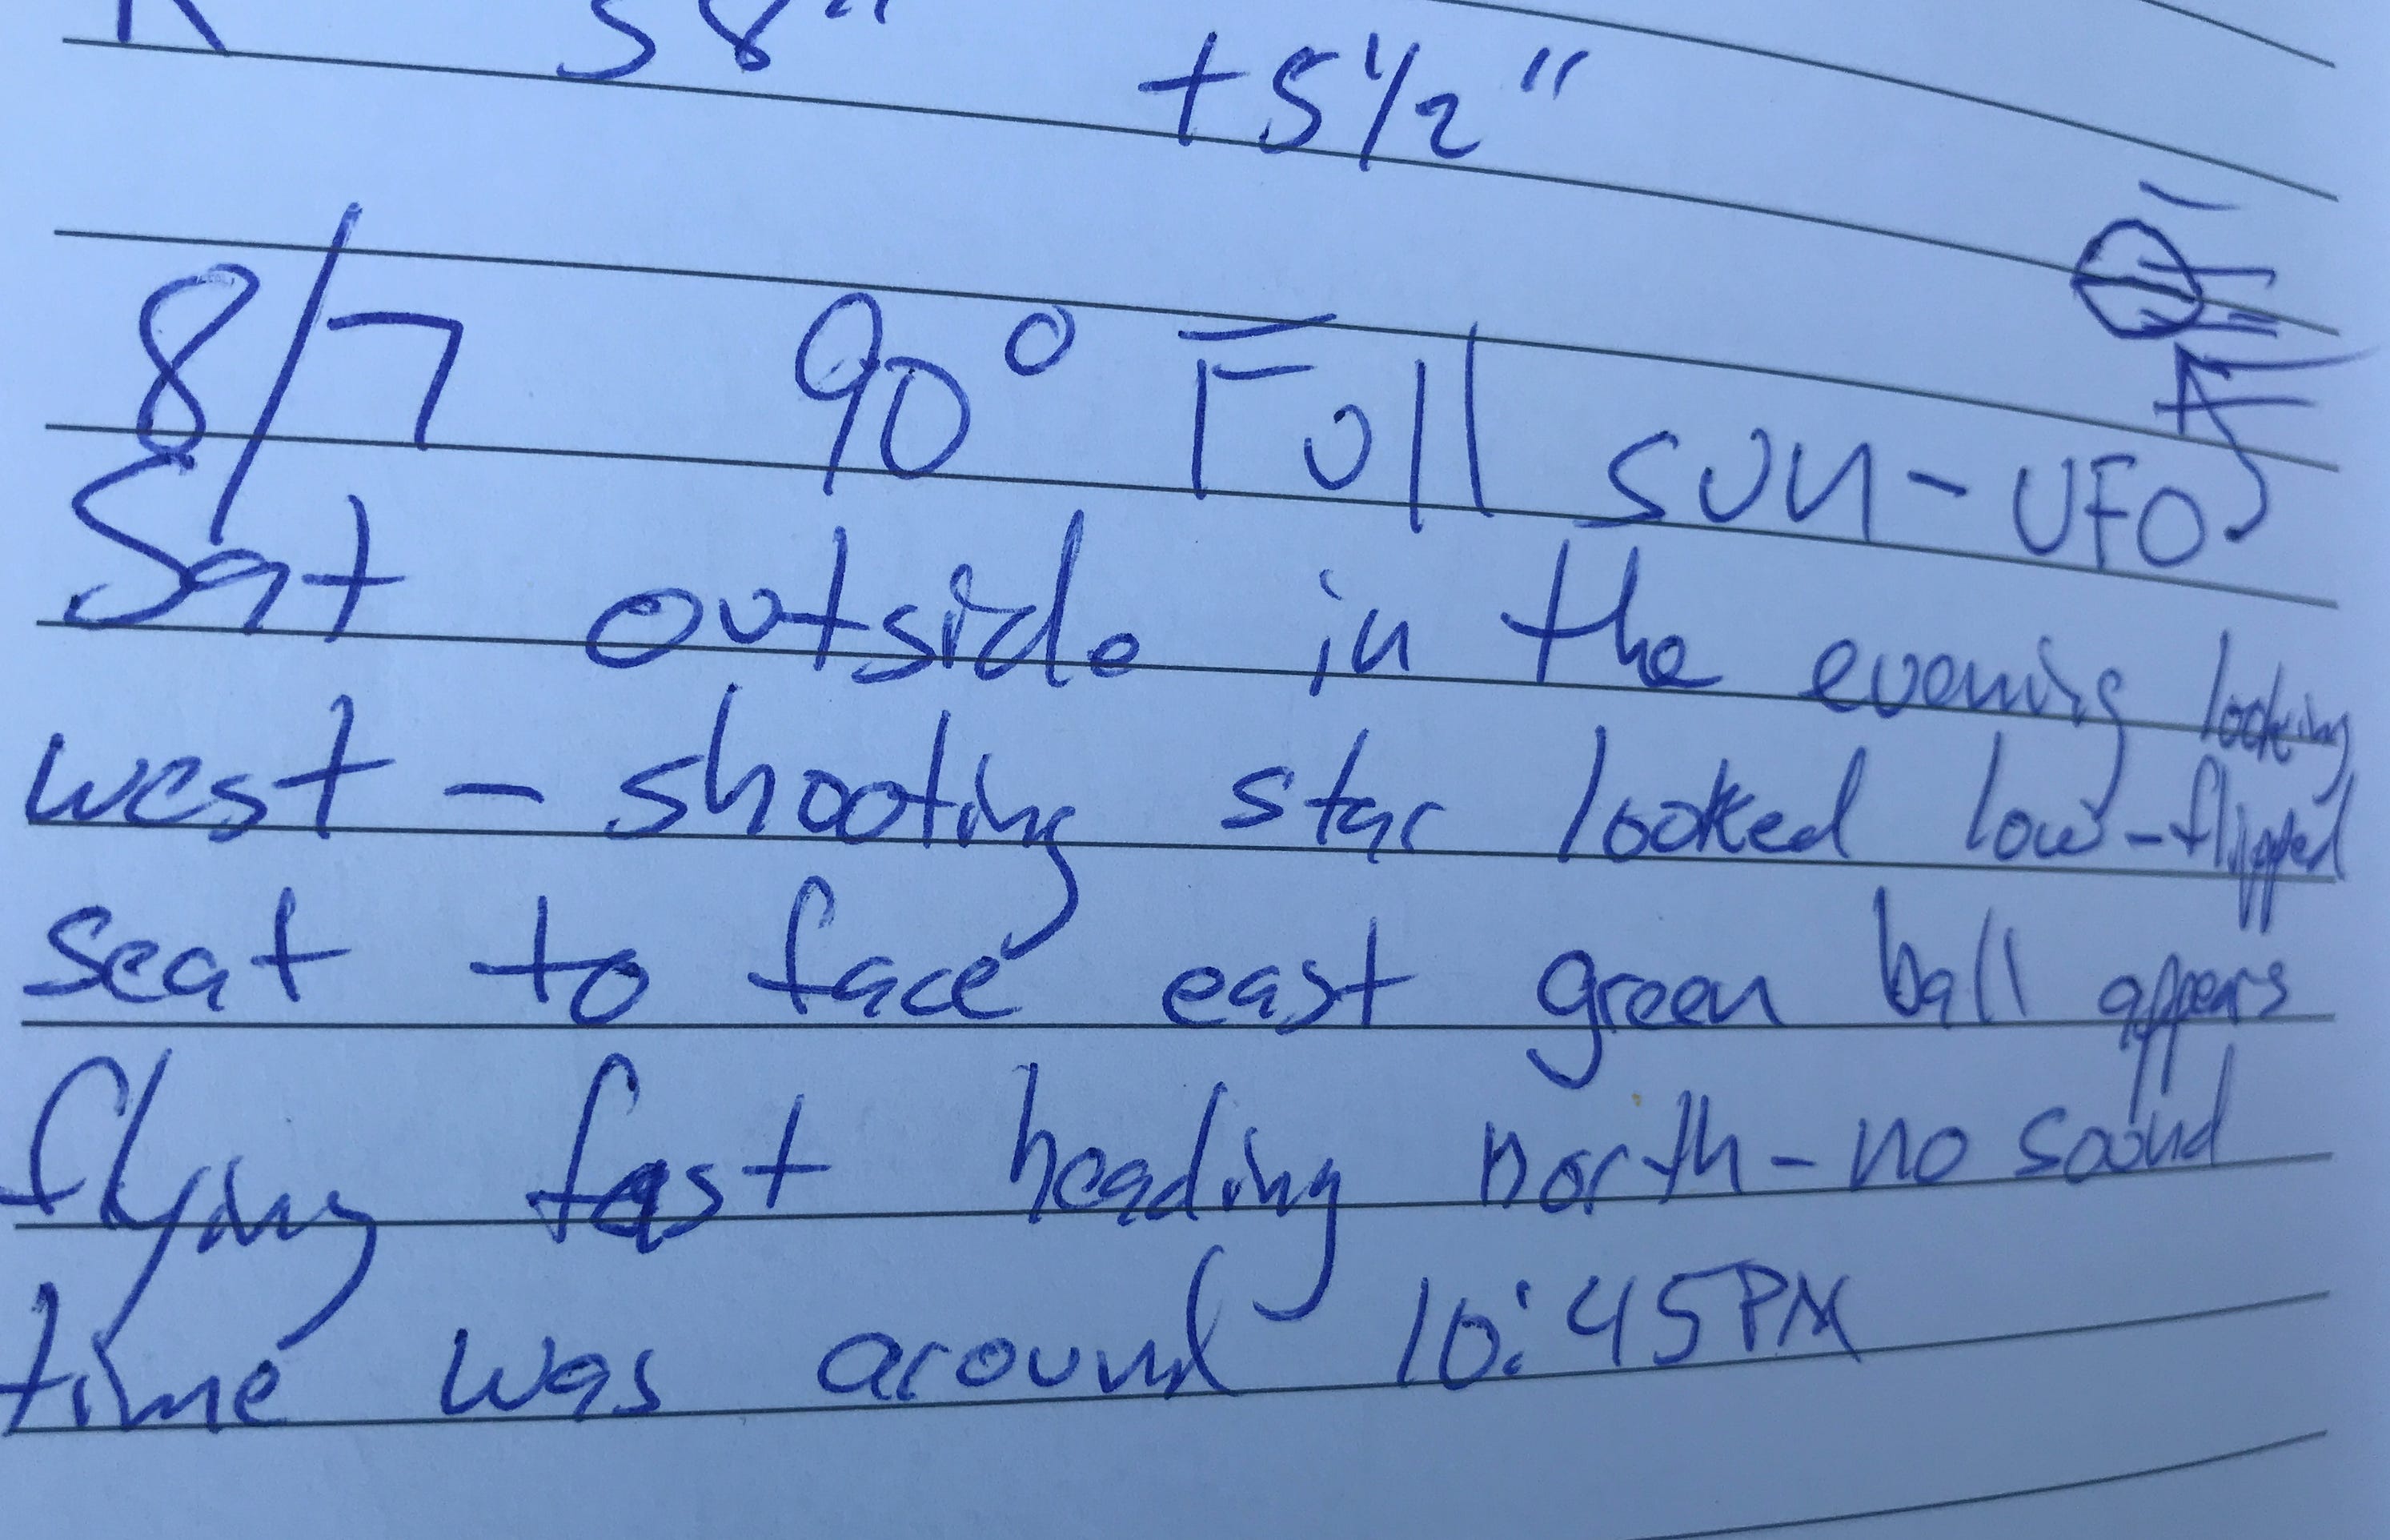 58" +5 1/2"
8/7 90° Full sun - UFO
Sat outside in the evening looking
west - shooting star looked low - flipped
seat to face east green ball appears
flying fast heading north - no sound
time was around 10:45PM